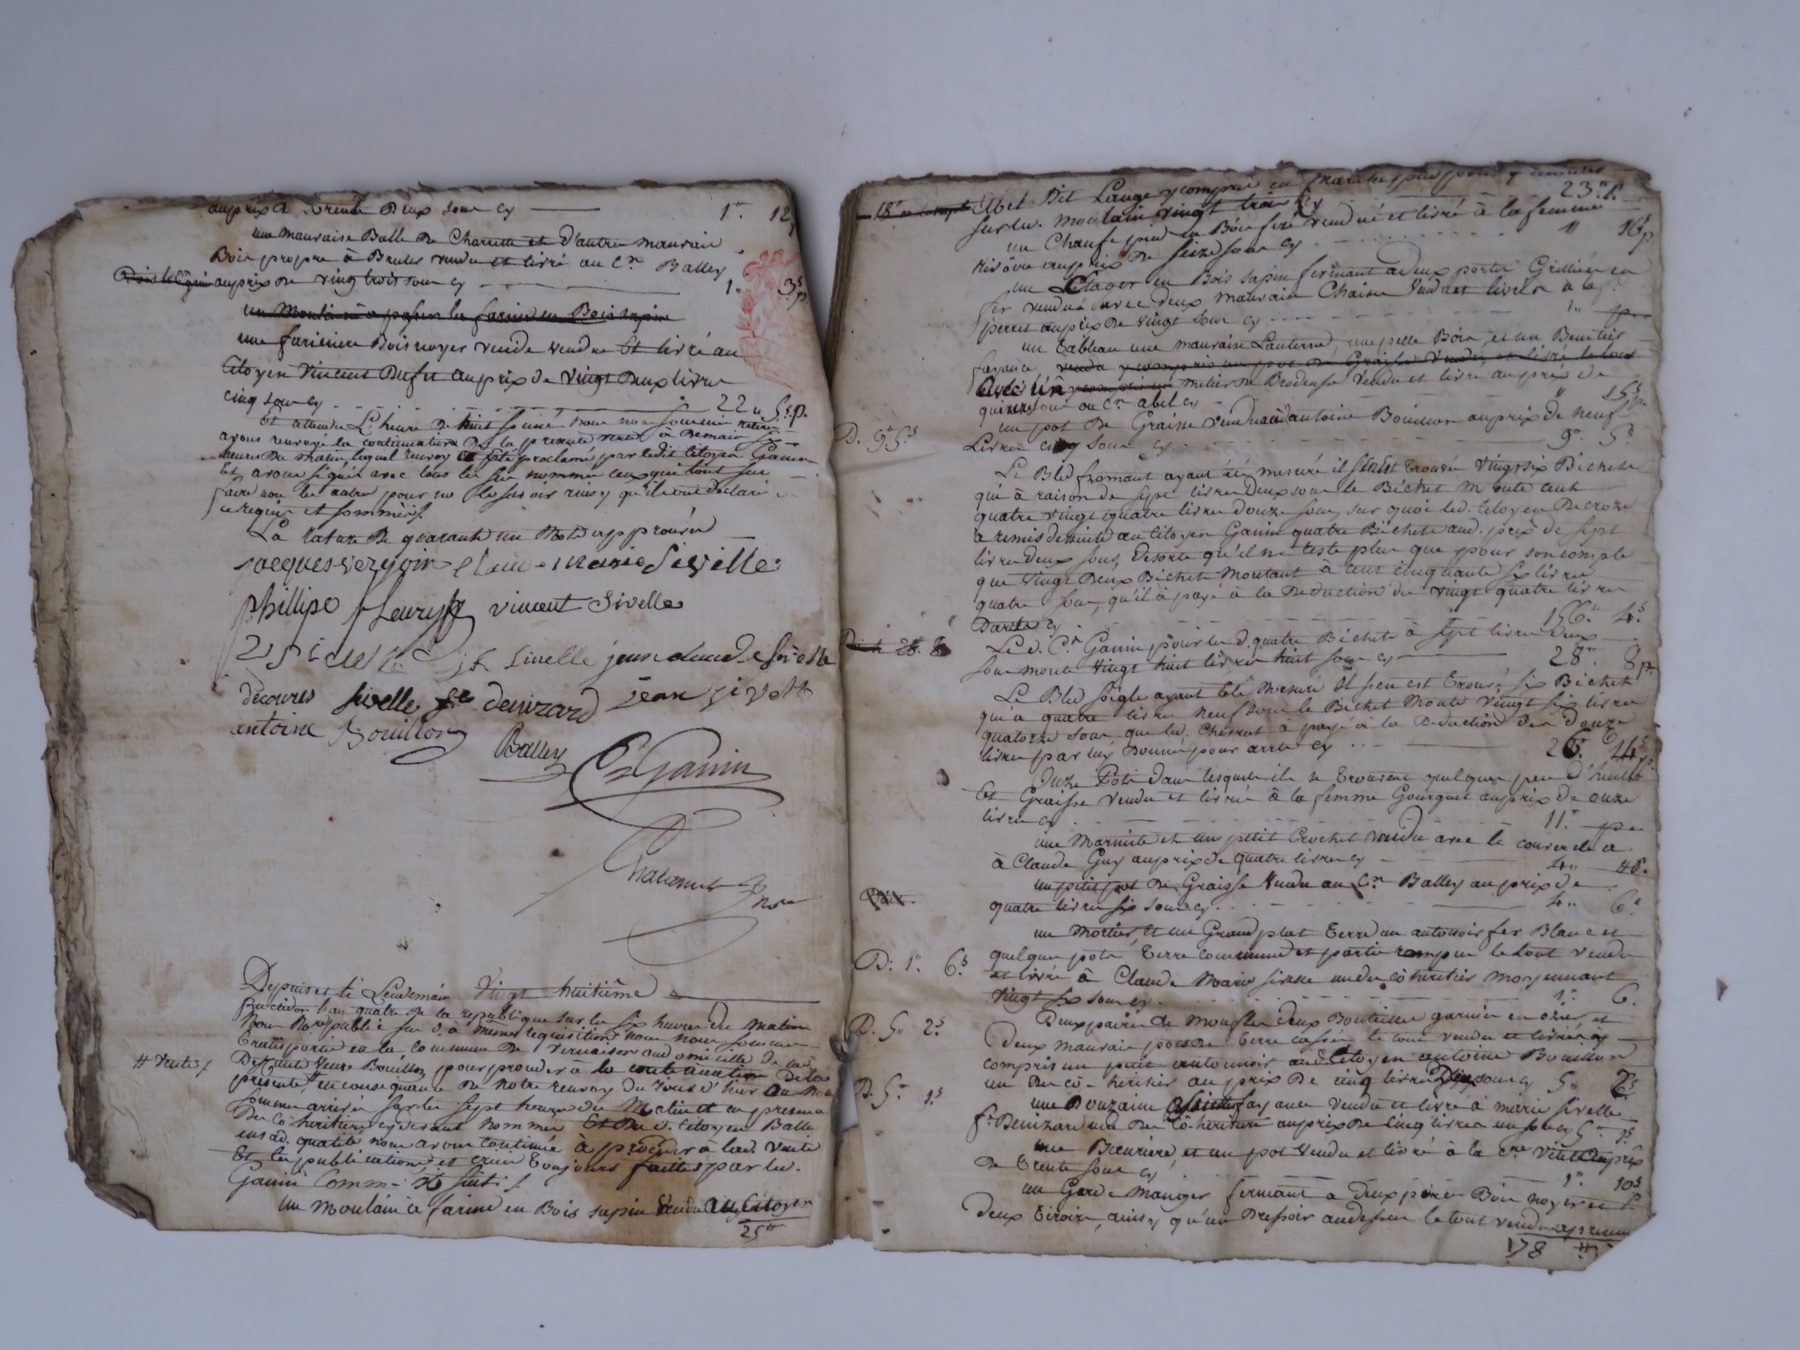 auprix de trente Deux sous cy 1" 12
une mauvaise Balle de Charette et d'autre mauvais
Bois propre à Bruler vendu et livré au Cn Balley
auprix de vingt trois sous cy 1" 3s
un Moulin à passer la farine en Bois sapin
une fariniere Bois noyer vendue et livré au
Citoyen Vincent Dufut auprix de vingt Deux livres
cinq sous cy 22" 5s.p.
Et attendu L'heure de huit
avons renvoyé la continuation De la présente vente à Demain six
heures du matin, lequel renvoy a été proclamé par ledit Citoyen Ganin
Et avons signé avec tous les sus nommés ceux qui l'ont su
faire non les autres pour ne le savoir
requis et sommés /
La rature de quarante un mots approuvée
jacques vergoin Claude marie Sivelle
phillipe fleury vincent Sivelle
Sivelle jean claude Sivelle
decoures Sivelle fe denizard jean
antoine Bouillon
Balley Cn Ganin
Depuis et le Lendemain Vingt huitième
fructidor l'an quatre de la republique sur les six heures du matin
Nous Not. public sus d. à mesme requisition nous nous sommes
transportés en la Commune de Vernaison aud. domicille de la
# vente /
Defunte veuve Bouillon pour proceder à la continuation de la
presente # en consequance de notre renvoy du jour d'hier ou nous
sommes arrivés sur les sept heures du Matin et en presence
Des Co héritiers cy devant nommés Et Du d. Citoyen Balley
en sad. qualité nous avons continué à proceder à lad. vente
Et les publications et criées toujours faittes par led.
Ganin Comme s'en suit /
un Moulain à farine en Bois sapin vendu au Citoyen
25"
Abel Dit Lange y compris
sur led. moulain vingt trois cy 23" p.
un Chaufe pied en Bois ferré vendu et livré à la femme
auprix de seize sous cy " 16s p
un Etager en Bois sapin fermant a deux portes Grillées en
fer vendu avec deux mauvaises Chaises Vendu et livré à la
perret auprix de vingt sous cy 1"
un tableau une mauvaise Lanterne, une pelle Bois, et un Benitier
fayance
avec un metier de Brodeuse vendu et livré au prix de
quinze sous au Cn abel cy " 15s
un pot de Graisse vendu aud. antoine Bouillon auprix de neuf
D. 9" 5s
Livres cinq sous cy 9" 5s
Le Bled fromant ayant été mesuré il s'en est trouvé vingt six Bichets
qui à raison de sept livres deux sous le Bichet monte cent
quatre vingt quatre livres douze sous, sur quoi led. Citoyen Decroze
a remis de suite au Citoyen Ganin quatre Bichets aud. prix de sept
livres deux sous, Desorte qu'il ne reste plus que pour son compte
que Vingt Deux Bichets Montant à cent cinquante six livres
quatre sous, qu'il à payé à la Deduction de vingt quatre livres
Darrhes cy 156" 4s
Led. Cn Ganin pour les d. quatre Bichets à sept livres deux
sous monte vingt huit livres huit sous cy 28" 8s
Le Bled seigle ayant été mesuré il s'en est trouvé six Bichets
qui à quatre livres neuf sous le Bichet Monte vingt six livres
quatorze sous que led. à payé à la Deduction de douze
livres par luy Donné pour arrhe cy 26" 14s
Onze Pots dans lesquels il se trouvent quelque peu d'huille
Et Graisse vendu et livré à la femme Gourguet auprix de onze
livres cy 11"
une Marmite et un petit Crochet vendu avec le couvercle
à Claude Guy auprix de quatre livres cy 4"
un petit pot de Graisse vendu au Cn Balley au prix de
quatre livres six sous cy 4" 6s
un mortier, et un Grand plat terre un antonoir fer Blanc et
D: 1" 6s
quelque pots terre commune et partie rompue le tout vendu
et livré à Claude Marie Sivelle un des cohéritiers moyennant
vingt six sous cy 1" 6.
Deux paires de Mouchettes deux Bouteilles garnies en ozier et
D. 5" 2s
deux mauvais pots de terre cassés le tout vendu et livré y
compris un petit antonoir aud. Citoyen antoine Bouillon
un Des co-heritiers au prix de cinq livres Deux sous cy 5" 2s
D. 5" 1s
une Douzaine assiettes fayance vendu et livré à marie Sivelle
fe Denizard une des Co-heritiers auprix de cinq livres un sous cy 5" 1s
une Beuriere, et un pot vendu et livré à la Cne Vitte auprix
de trente sous cy 1" 10s
un Garde Manger fermant a deux portes Bois noyer et
deux tiroirs, ainsy qu'un Dressoir audessus le tout vendu
178